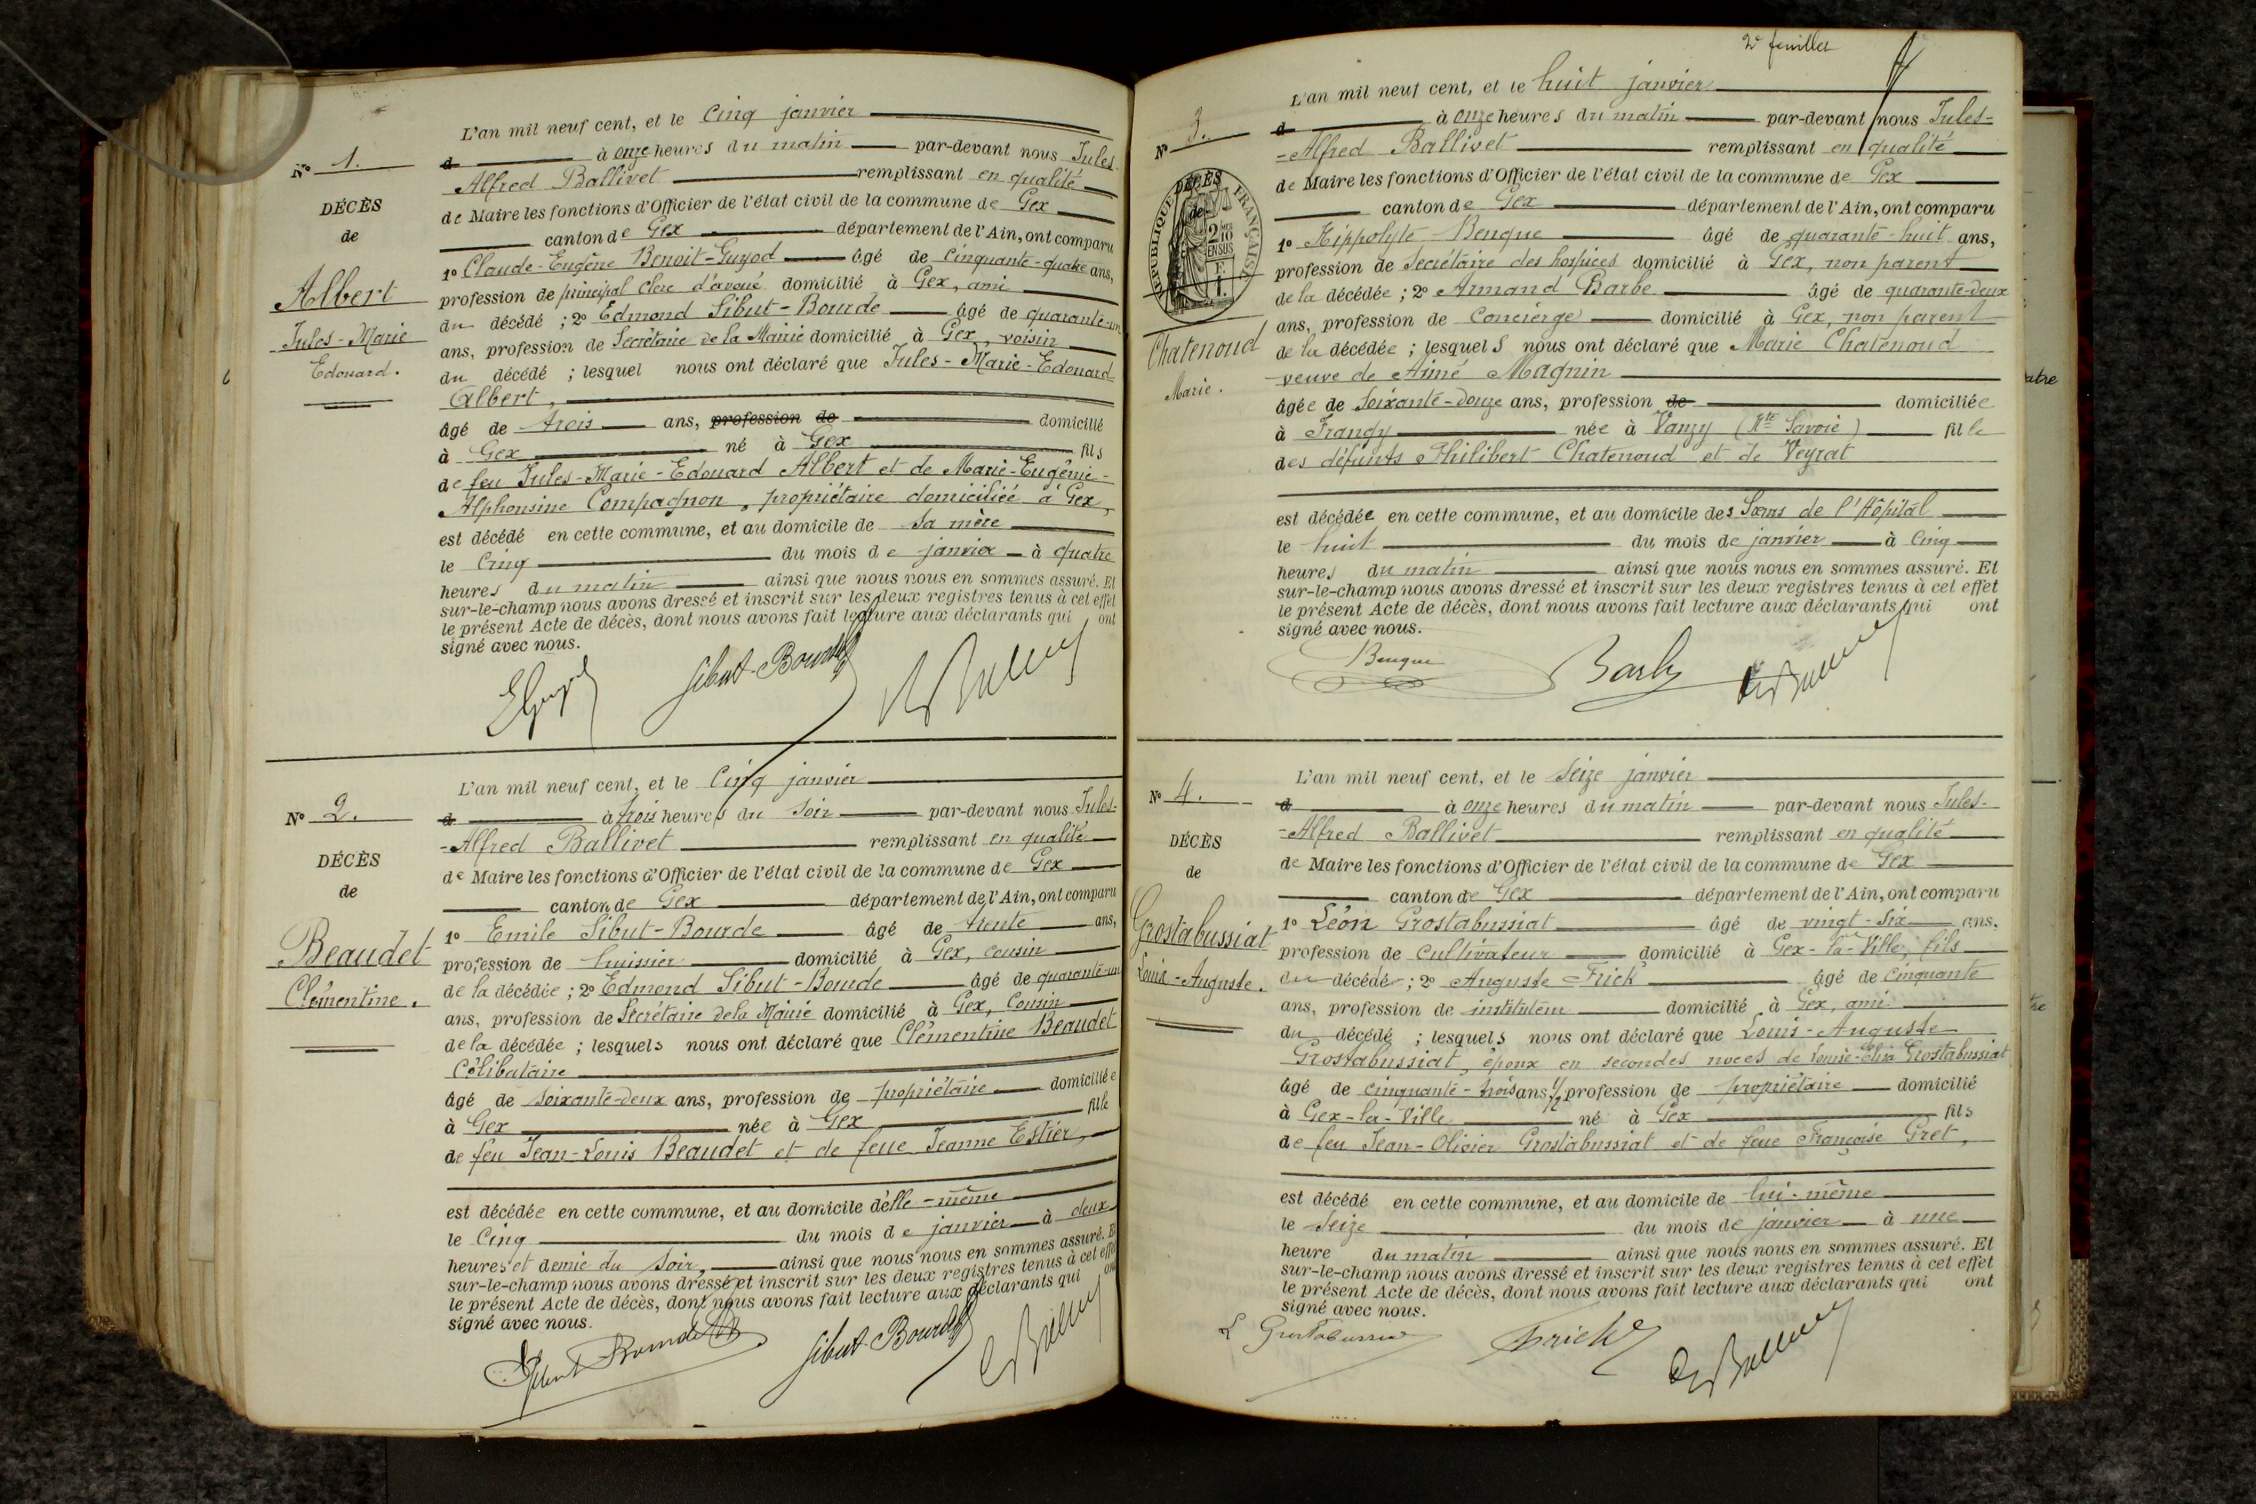 L'an mil neuf cent, et le cinq janvier
N° 1.
d à onze heures du matin par-devant nous Jules
Alfred Ballivet remplissant en qualité
DÉCÈS
de Maire les fonctions d'Officier de l'état civil de la commune de Gex
de
canton de Gex département de l'Ain, ont comparu
1° Claude-Eugène Benoit-Guyod âgé de cinquante-quatre ans,
Albert
profession de principal clerc d'avoué domicilié à Gex, ami
du décédé ; 2° Edmond Sibut-Bourde âgé de quarante-un
Jules-Marie
ans, profession de Secrétaire de la Mairie domicilié à Gex, voisin
Edouard.
du décédé ; lesquel nous ont déclaré que Jules-Marie-Edouard
Albert,
âgé de trois ans, profession de domicilié
à Gex né à Gex fils
de feu Jules-Marie-Edouard Albert et de Marie-Eugénie-
Alphonsine Compagnon, propriétaire domiciliée à Gex,
est décédé en cette commune, et au domicile de sa mère
le cinq du mois de janvier à quatre
heures du matin ainsi que nous nous en sommes assuré. Et
sur-le-champ nous avons dressé et inscrit sur les deux registres tenus à cet effet
le présent Acte de décès, dont nous avons fait lecture aux déclarants qui ont
signé avec nous.
EGuyod Sibut-Bourde
L'an mil neuf cent, et le cinq janvier
N° 2.
d à trois heures du soir par-devant nous Jules-
-Alfred Ballivet remplissant en qualité
DÉCÈS
de Maire les fonctions d'Officier de l'état civil de la commune de Gex
de
canton de Gex département de l'Ain, ont comparu
1° Emile Sibut-Bourde âgé de trente ans,
Beaudet
profession de huissier domicilié à Gex, cousin
de la décédée ; 2° Edmond Sibut-Bourde âgé de quarante-un
Clémentine.
ans, profession de Secrétaire de la Mairie domicilié à Gex, Cousin
de la décédée ; lesquels nous ont déclaré que Clémentine Beaudet
Célibataire
âgé de soixante-deux ans, profession de propriétaire domiciliée
à Gex née à Gex fille
de feu Jean-Louis Beaudet et de feue Jeanne Estier,
est décédée en cette commune, et au domicile d'elle-même
le cinq du mois de janvier à deux
heures et demie du soir, ainsi que nous nous en sommes assuré. Et
sur-le-champ nous avons dressé et inscrit sur les deux registres tenus à cet effet
le présent Acte de décès, dont nous avons fait lecture aux déclarants qui ont
signé avec nous.
Sibut Bourde Sibut-Bourde
2e feuillet
L'an mil neuf cent, et le huit janvier
N° 3.
d à onze heures du matin par-devant nous Jules-
-Alfred Ballivet remplissant en qualité
DÉCÈS
de Maire les fonctions d'Officier de l'état civil de la commune de Gex
de
RÉPUBLIQUE FRANÇAISE
canton de Gex département de l'Ain, ont comparu
1° Hippolyte Benque âgé de quarante-huit ans,
profession de Secrétaire des hospices domicilié à Gex, non parent
de la décédée ; 2° Armand Barbe âgé de quarante-deux
ans, profession de concierge domicilié à Gex, non parent
Chatenoud
de la décédée ; lesquels nous ont déclaré que Marie Chatenoud
veuve de Aimé Magnin
Marie.
âgée de soixante-douze ans, profession de domiciliée
à Frangy née à Vanzy (Hte Savoie) fille
des défunts Philibert Chatenoud et de Veyrat
est décédée en cette commune, et au domicile des Sœurs de l'Hôpital
le huit du mois de janvier à cinq
heures du matin ainsi que nous nous en sommes assuré. Et
sur-le-champ nous avons dressé et inscrit sur les deux registres tenus à cet effet
le présent Acte de décès, dont nous avons fait lecture aux déclarants qui ont
signé avec nous.
Benque Barbe
L'an mil neuf cent, et le seize janvier
N° 4.
d à onze heures du matin par-devant nous Jules-
-Alfred Ballivet remplissant en qualité
DÉCÈS
de Maire les fonctions d'Officier de l'état civil de la commune de Gex
de
canton de Gex département de l'Ain, ont comparu
1° Léon Grostabussiat âgé de vingt-six ans,
Grostabussiat
profession de cultivateur domicilié à Gex-la-Ville, fils
Louis-Auguste.
du décédé ; 2° Auguste Frick âgé de cinquante
ans, profession de instituteur domicilié à Gex, ami
du décédé ; lesquels nous ont déclaré que Louis-Auguste
Grostabussiat, époux en secondes noces de Louise-Elisa Grostabussiat
âgé de cinquante-trois ans 1/2, profession de propriétaire domicilié
à Gex-la-Ville né à Gex fils
de feu Jean-Olivier Grostabussiat et de feue Françoise Gret,
est décédé en cette commune, et au domicile de lui-même
le seize du mois de janvier à une
heure du matin ainsi que nous nous en sommes assuré. Et
sur-le-champ nous avons dressé et inscrit sur les deux registres tenus à cet effet
le présent Acte de décès, dont nous avons fait lecture aux déclarants qui ont
signé avec nous.
L Grostabussiat Frick